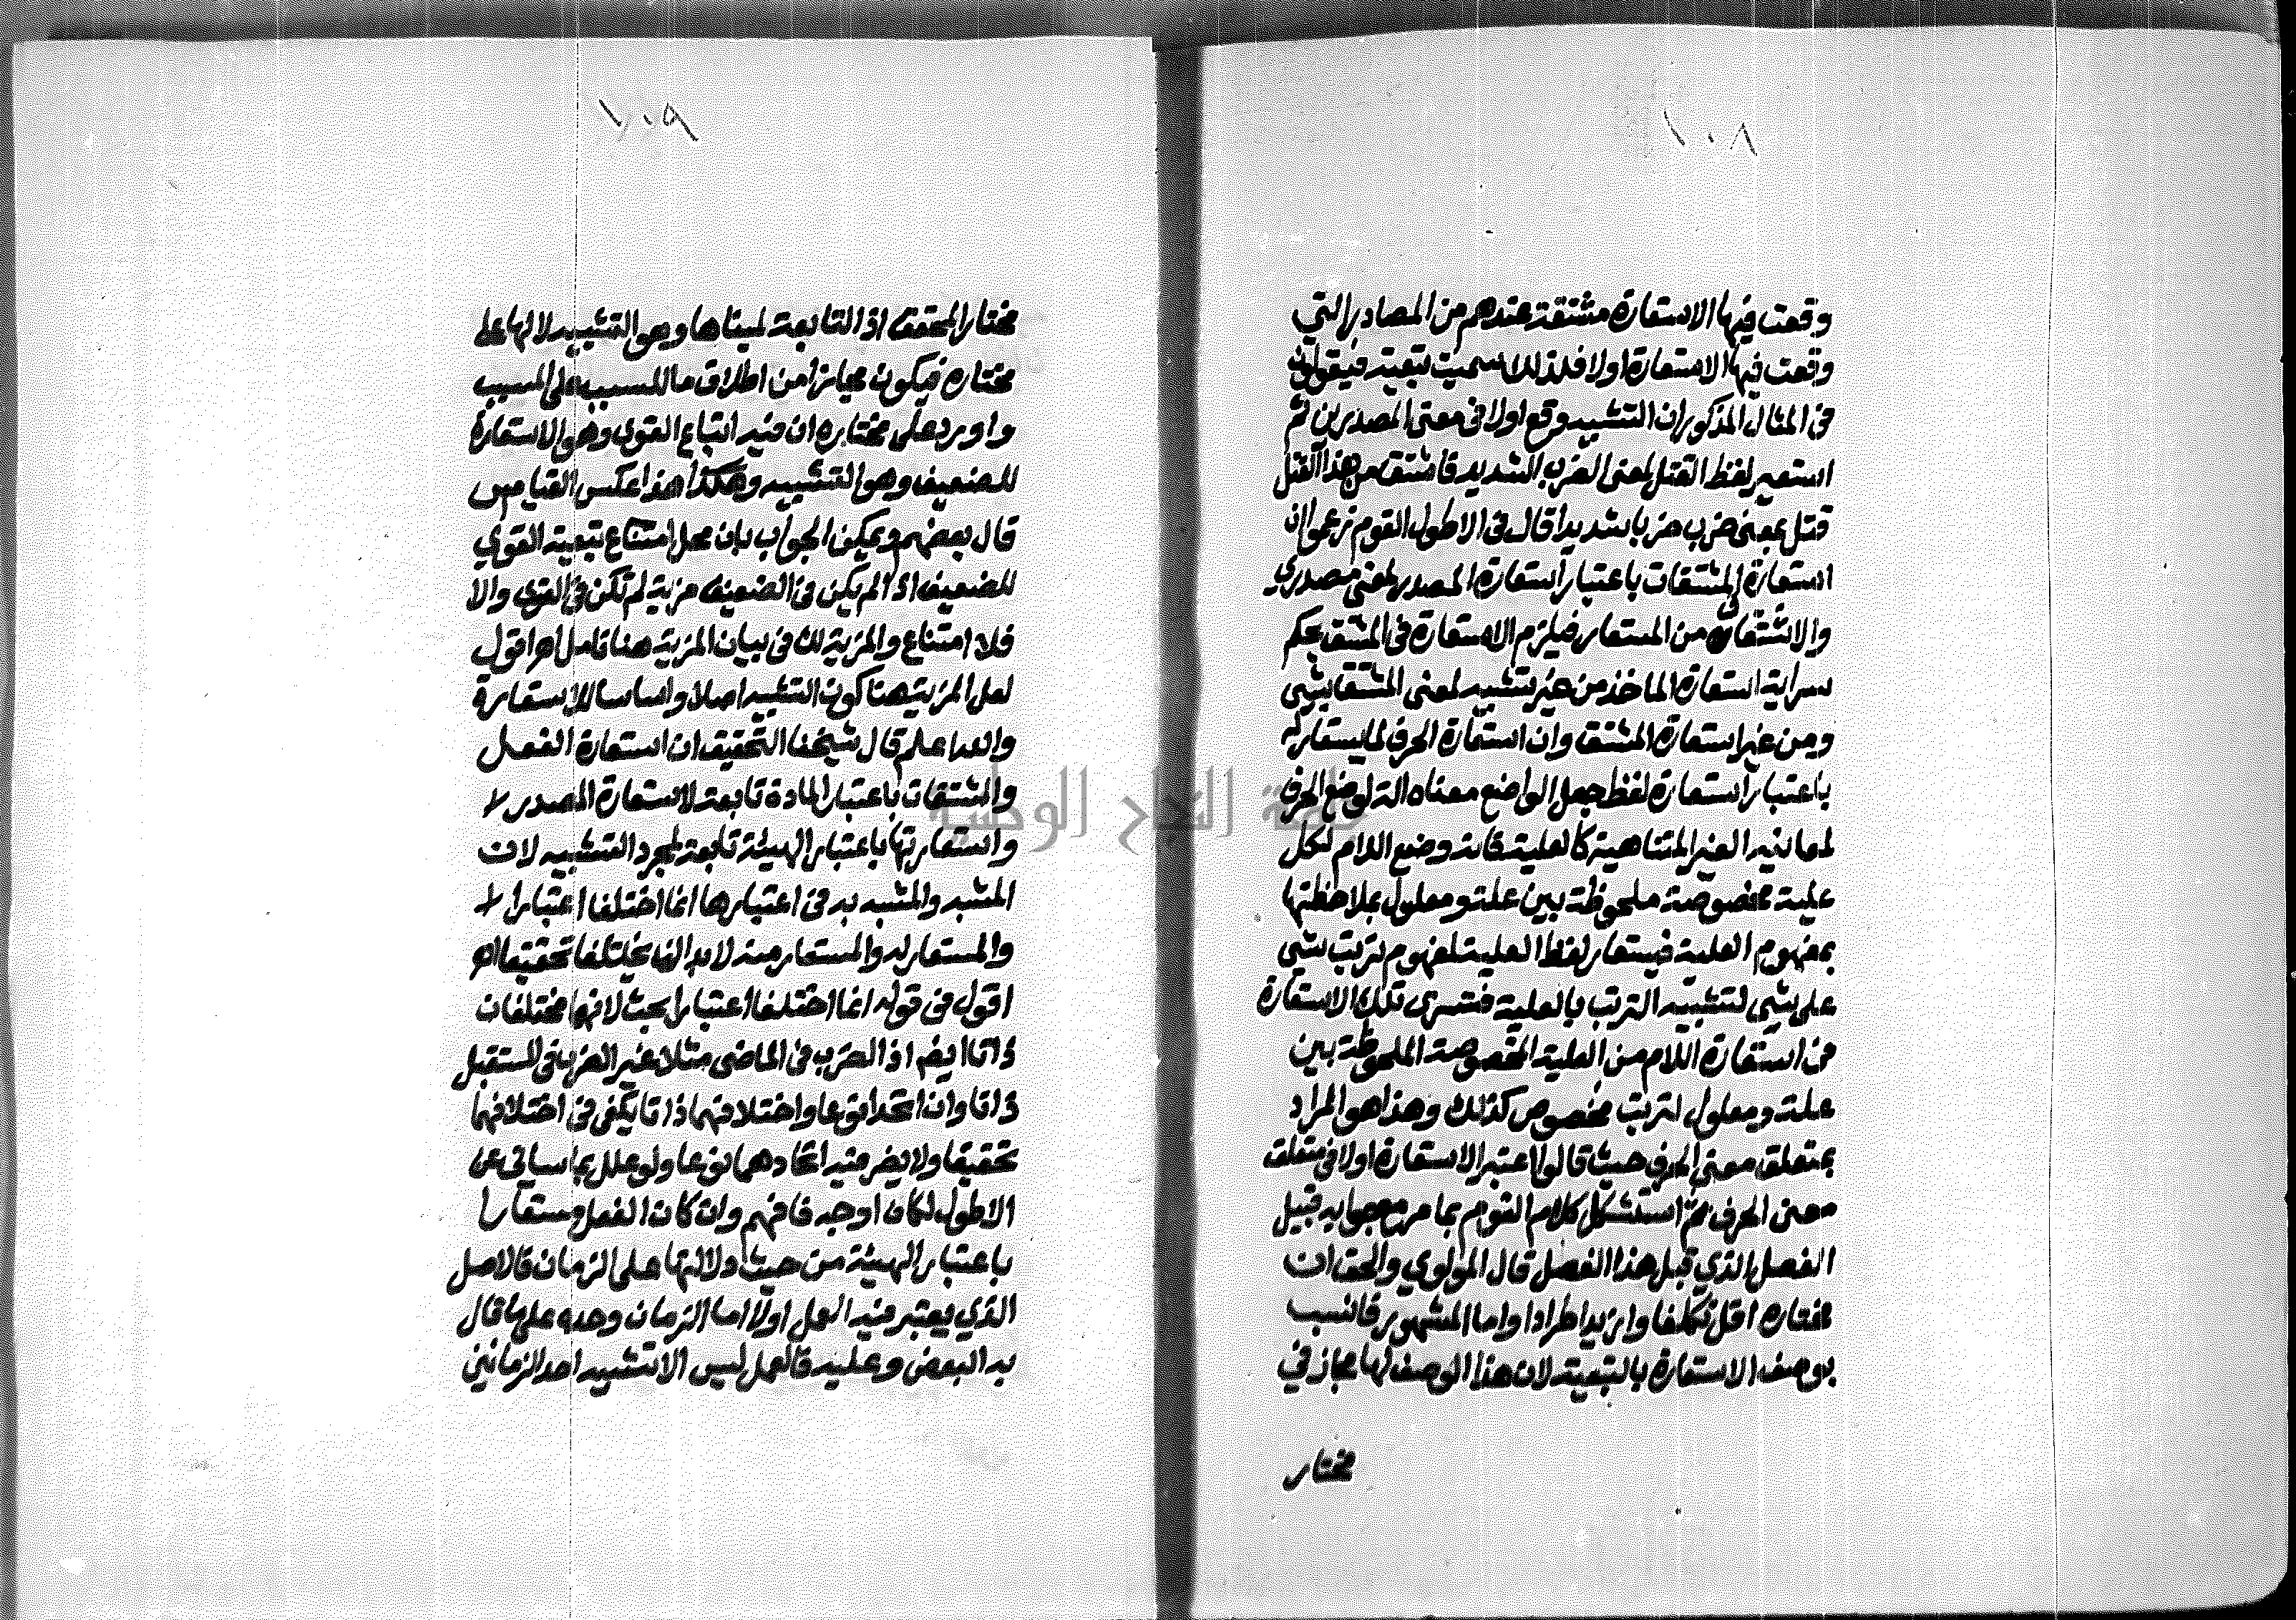 ١٠٨
وقعت فيها الاستعارة مشتقة عندهم من المصادر التي
وقعت فيها الاستعارة اولا فلذلك سميت تبعية فيقولون
في المثال المذكور ان التشبيه وقع اولا في معنى المصدرين ثم
استعير لفظ القتل لمعنى الضرب الشديد فاشتق من هذا القتل
قتل بمعنى ضرب ضربا شديدا قال في الاطول القوم زعموا ان
استعارة المشتقات باعتبار استعارة المصدر لمعنى مصدري
والاشتقاق من المستعار فيلزم الاستعارة في المشتق بحكم
سراية استعارة الماخذ من غير تشبيه لمعنى المشتق بشي
ومن غير استعارة المشتق وان استعارة الحرف لما يستعار له
باعتبار استعارة لفظ جعل الواضع معناه الة لوضع الحرف
لمعانيه الغير المتناهية كالعلية فانه وضع اللام لكل
علية مخصوصة ملحوظة بين علة ومعلول بملاحظتها
بمفهوم العلية فيستعار لفظ العلية لمفهوم ترتب شي
على شي لتشبيه الترتب بالعلية فتسرى تلك الاستعارة
في استعارة اللام من العلية المخصوصة الملحوظة بين
علة ومعلول لترتب مخصوص كذلك وهذا هو المراد
بمتعلق معنى الحرف حيث قالوا اعتبر الاستعارة اولا في متعلق
معنى الحرف ثم استشكل كلام القوم بما مر مع جوابه قبيل
الفصل الذي قبل هذا الفصل قال المولوي والحق ان
مختاره اقل تكلفا وازيد اطرادا واما المشهور فانسب
بوصف الاستعارة بالتبعية لان هذا الوصف لها مجاز في
مختار
١٠٩
مختار المحقق اذ التابعة لمبناها وهو التشبيه لا انها على
مختاره فيكون مجازا من اطلاق ما للسبب على المسبب
واورد على مختاره ان فيه اتباع القوى وهو الاستعارة
للضعيف وهو التشبيه وهكذا هذا عكس القياس
قال بعضهم ويمكن الجواب بان محل امتناع تبعية القوي
للضعيف اذا لم يكن في الضعيف مزية لم تكن في القوي والا
فلا امتناع والمزية لك في بيان المزية هنا تامل اه اقول
لعل المزية هنا كون التشبيه اصلا واساسا للاستعارة
والله اعلم قال شيخنا التحقيق ان استعارة الفعل
والمشتقات باعتبار المادة تابعة لاستعارة المصدر لا
واستعارتها باعتبار الهيئة تابعة لمجرد التشبيه لان
المشبه والمشبه به في اعتبارها انما اختلفا اعتبارا لا
والمستعار له والمستعار منه لابد ان يختلفا تحقيقا اه
اقول في قوله انما اختلفا اعتبارا بحث لانهما مختلفان
ذاتا ايضا اذ الضرب في الماضي مثلا غير الضرب في المستقبل
ذاتا وان اتحدا نوعا واختلافهما ذاتا يكفي في اختلافهما
تحقيقا ولا يضر فيه اتحادهما نوعا ولو علل بما سياتي عن
الاطول لكان اوجه فافهم وان كان الفعل مستعارا
باعتبار الهيئة من حيث دلالتها على الزمان فالاصل
الذي يعتبر فيه العمل اولا اما الزمان وحده على ما قال
به البعض وعليه فالعمل ليس الا تشبيه احد الزمانين